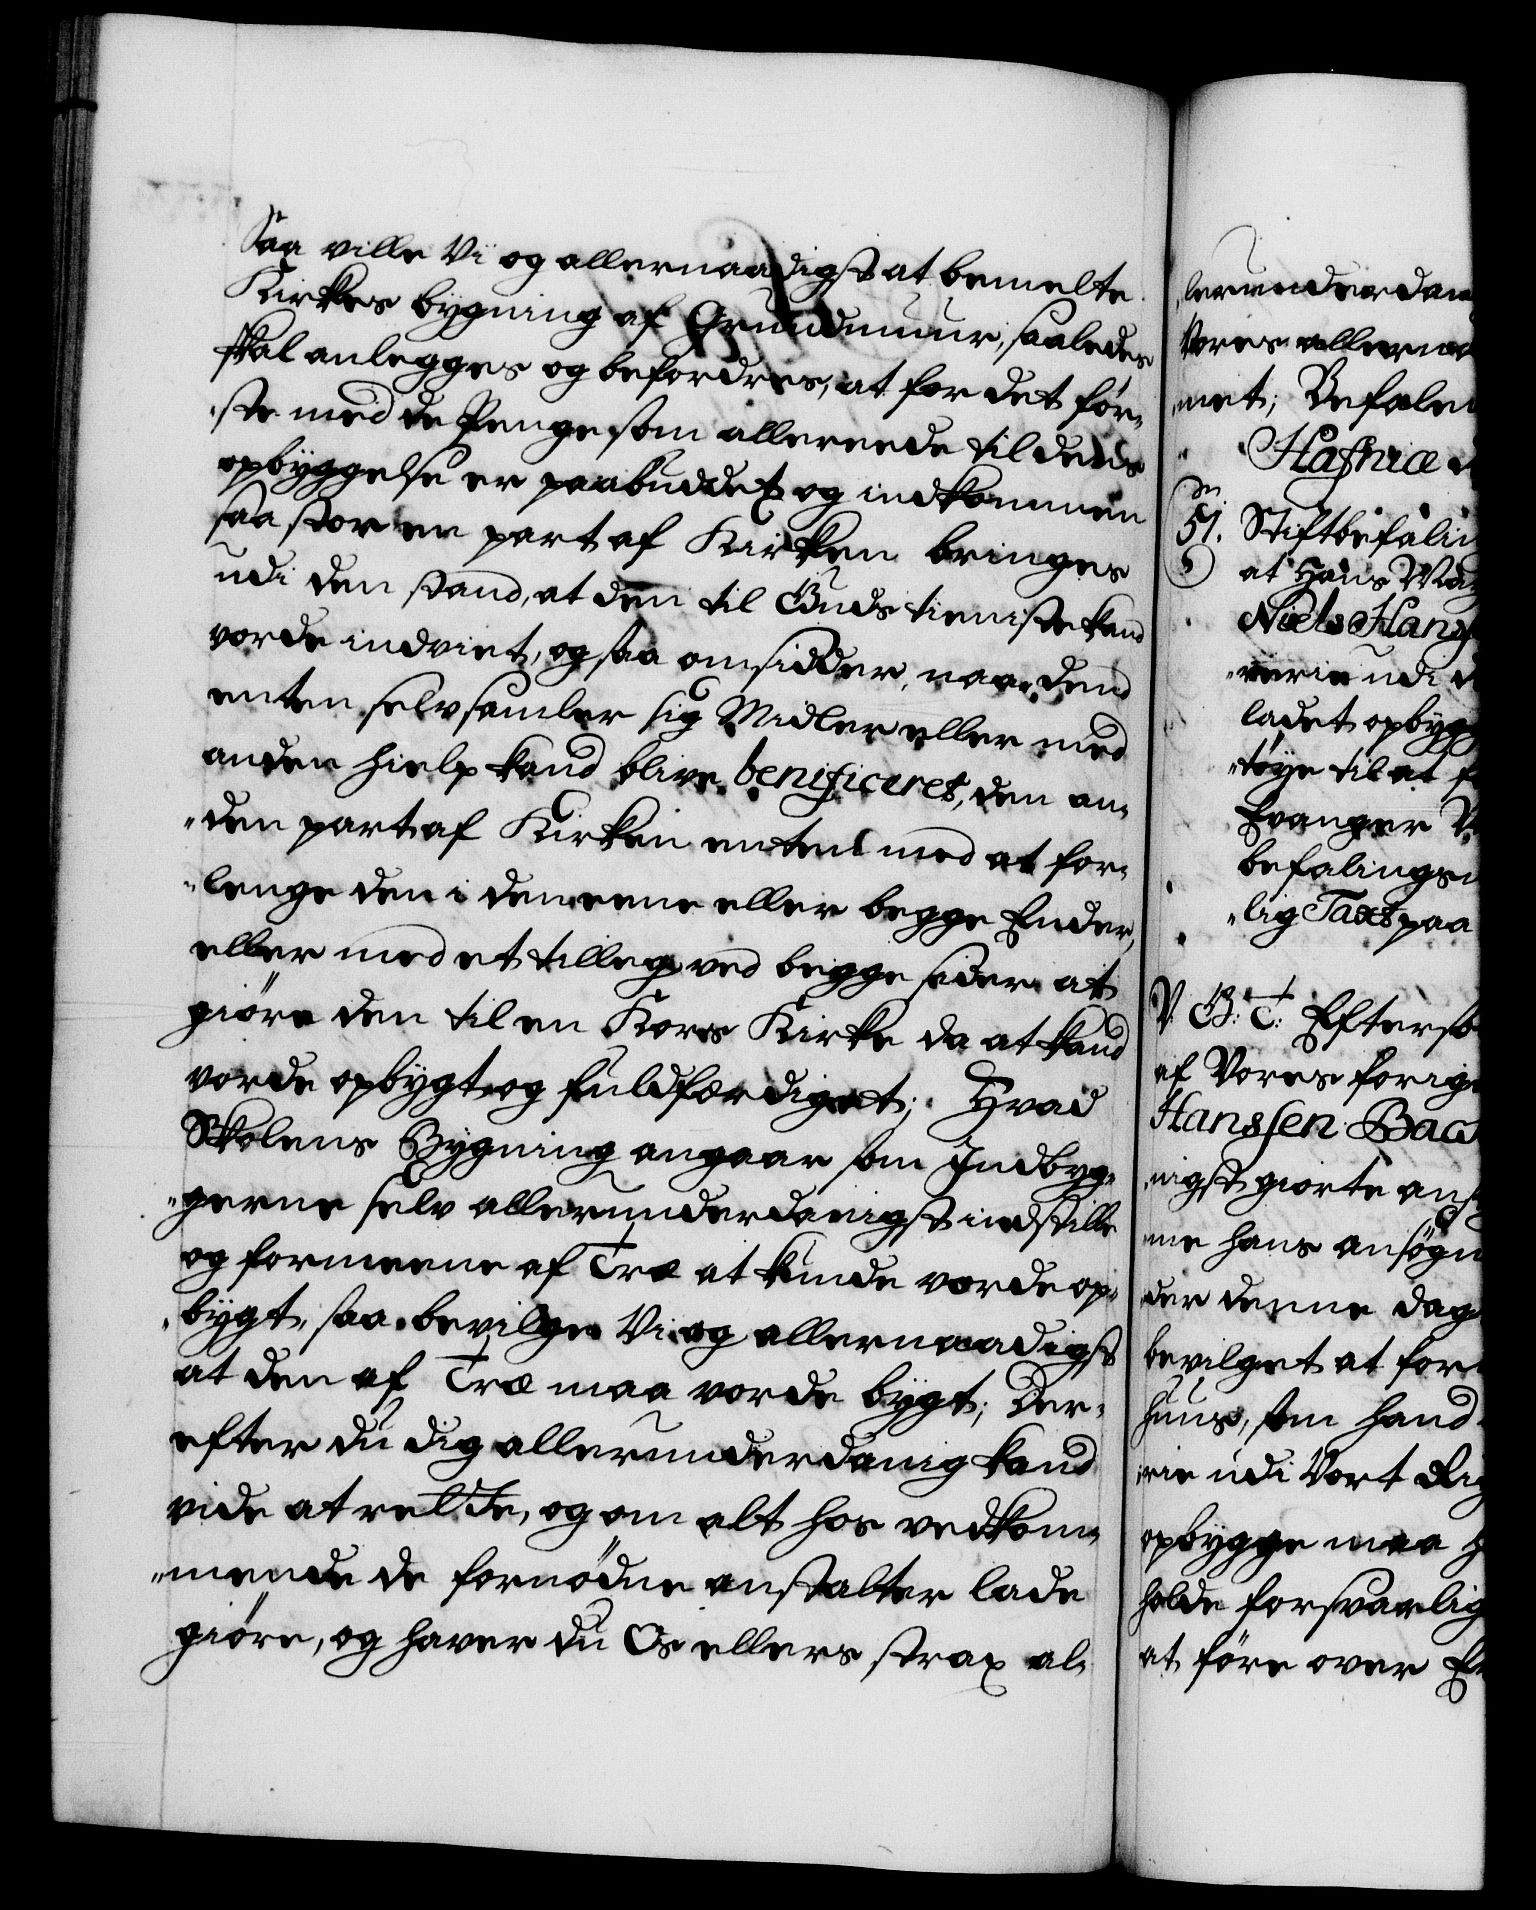 Saa ville Vi og allernaadigst at bemelte
Kirkes bygning af Grundmuur, saaledes
skal anlegges og befordres, at for det för-
ste med de Penge som allereede til dens
opbyggelse er paabuddet og indkommen
saa stor en part af Kirken bringes
udi den stand, at den til Guds tieniste kand
vorde indviet, og saa omsidder, naar dend
enten selv samler sig Midler eller med
anden hielp kand blive beneficeret, den an-
den part af Kirken enten med at for-
lenge den i den eene eller begge Ender,
eller med et tilleg ved begge sider at
giöre den til en Kors Kirke da at kand
vorde opbygt og fuldfærdiget; Hvad
Skolens Bygning angaar som Indbyg-
gerne selv allerunderdanigst indstille
og formeene af Træ at kunde vorde op-
bygt, saa bevilge Vi og allernaadigst
at den af Træ maa vorde bygt; Der-
efter du dig allerunderdanig kand
vide at rette, og om alt hos vedkom-
mende de fornödne anstalter lade
giöre, og haver du Os ellers strax al-
lerunderdan
Vores allerna
met; Befalen
Hafniæ d
51. Stiftbefalin
at Hans May
Niels Hans
verie udi d
ladet opbyg
töye til at f
Evanger
befalings
lig Taxt paa
V. G. T. Eftersom
af Vores forige
Hanssen Bac
nigst giorte ans
me hans ansögn
der denne dag
bevilget at for
huus, som hand
rie udi Vort Rig
opbygge maa h
holde forsvarlig
at före over E